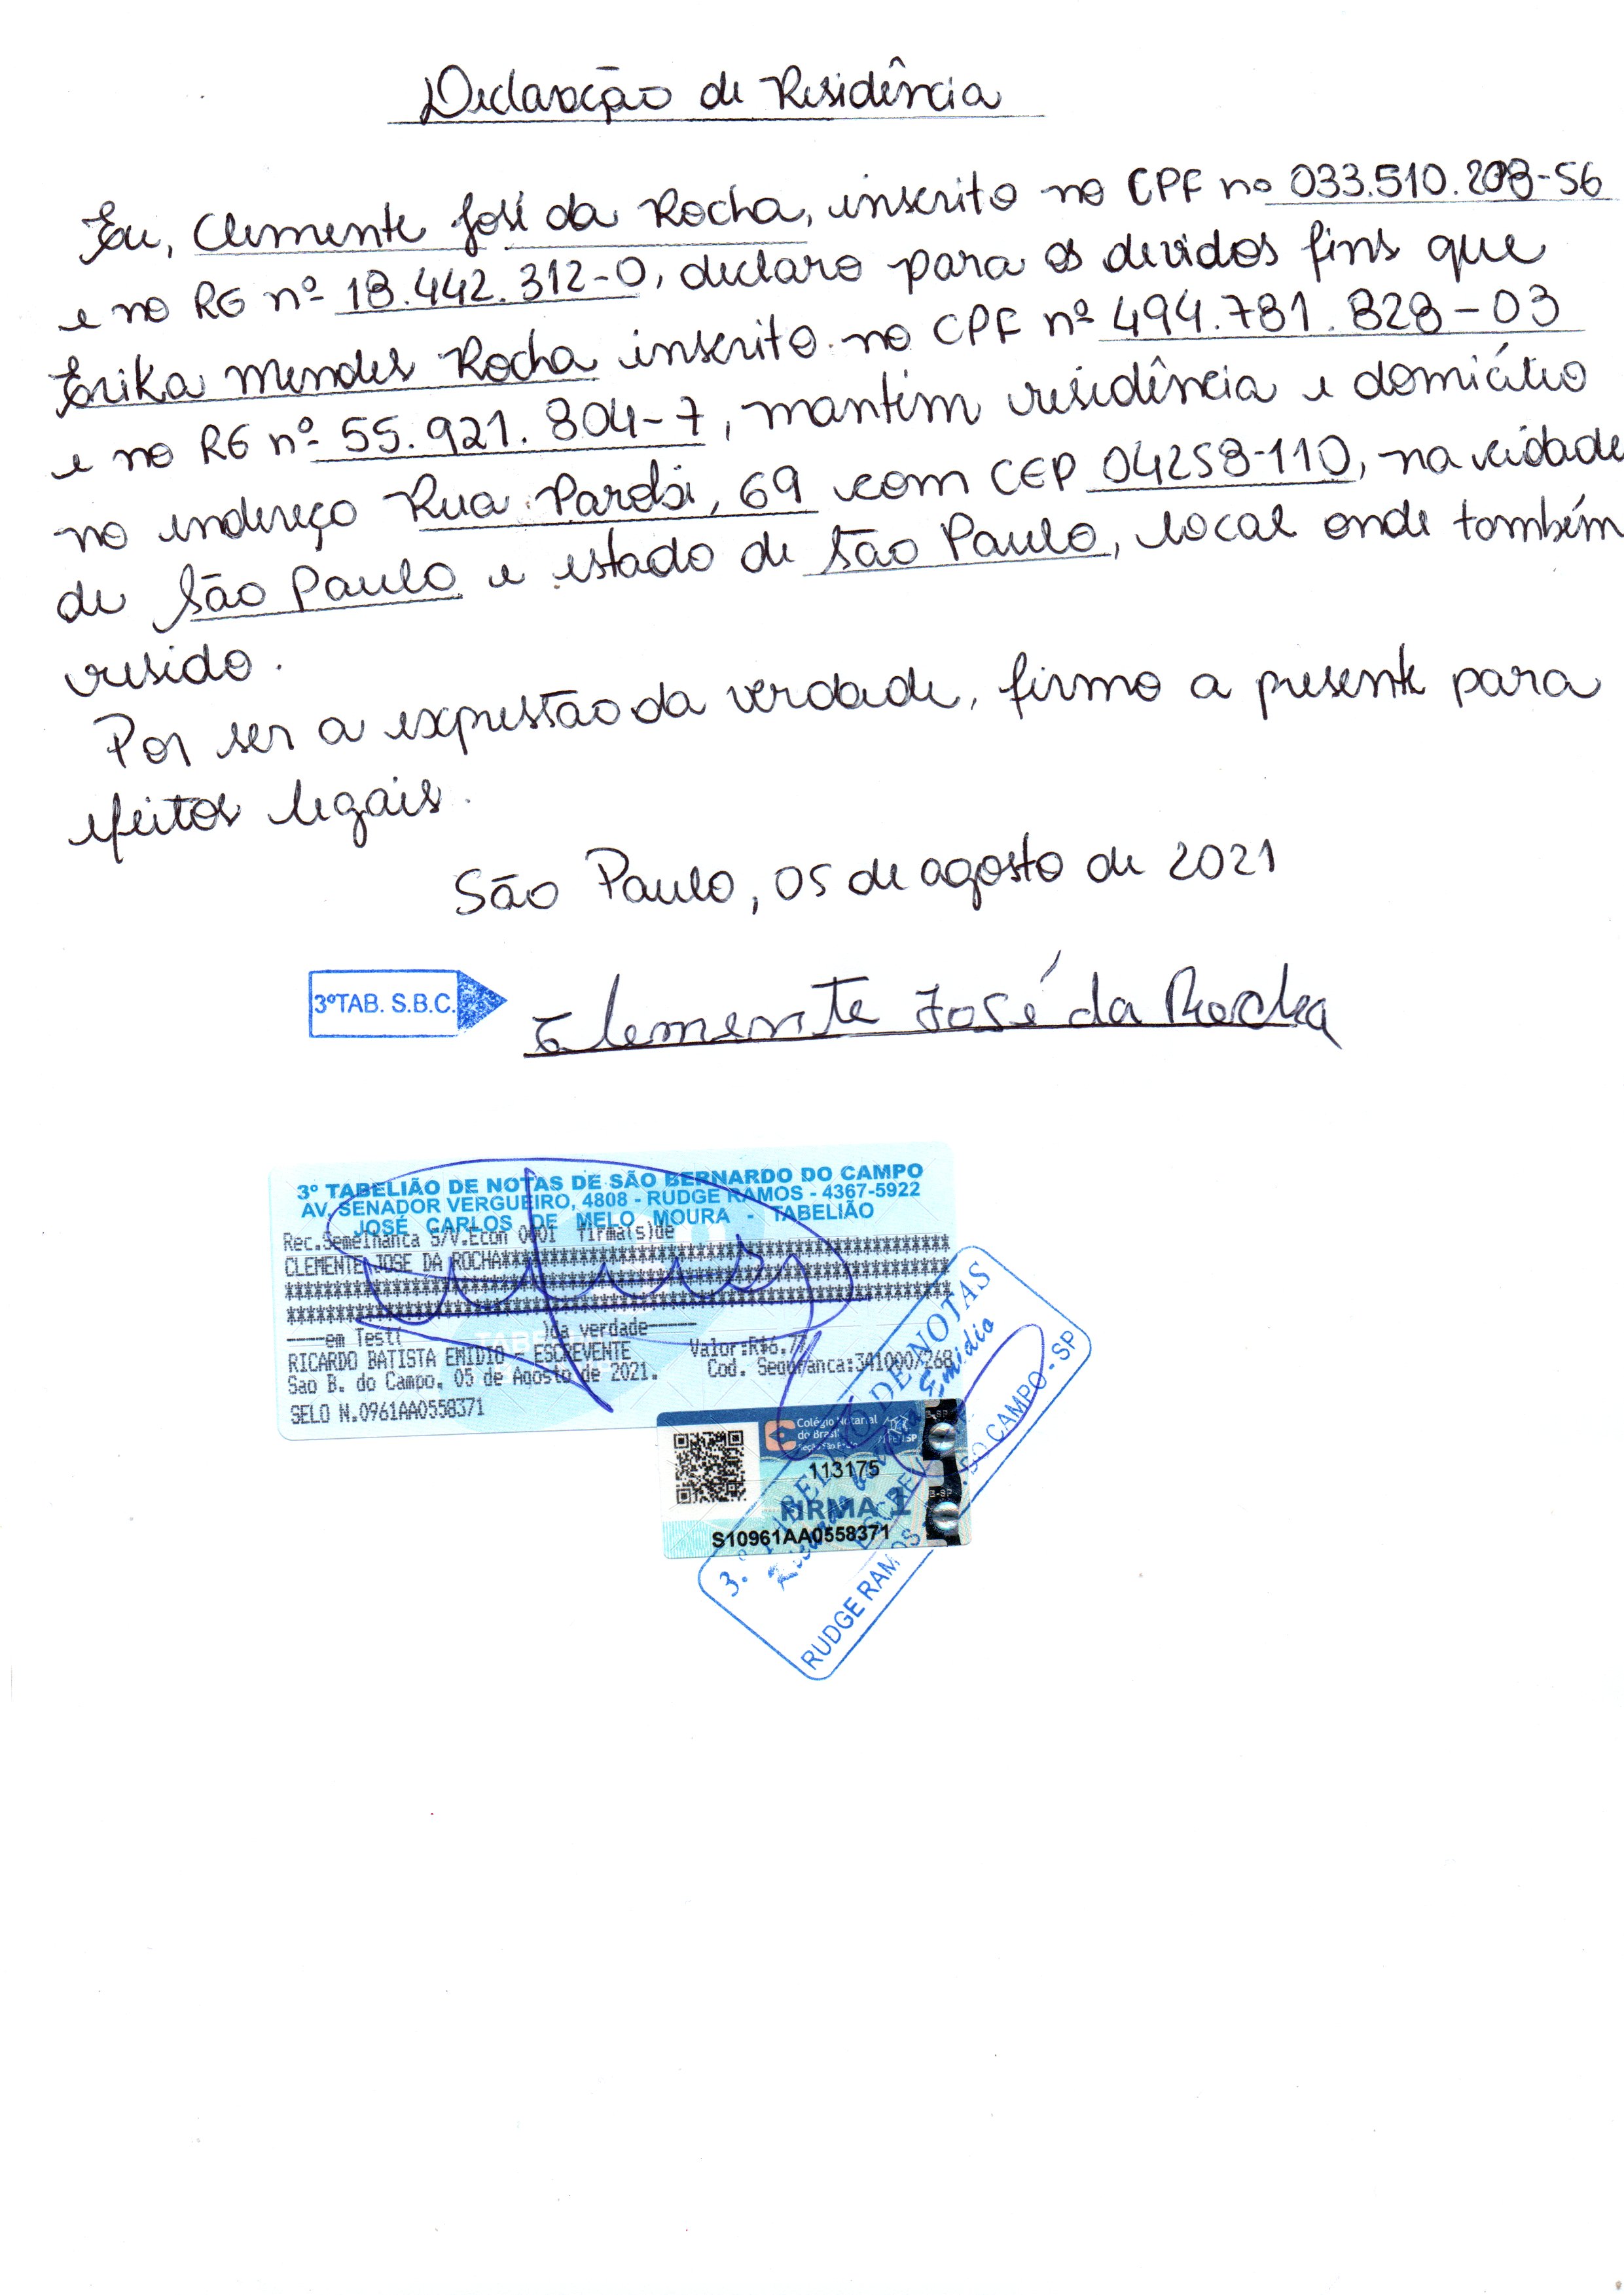 Declaração de Residência
Eu, Clemente José da Rocha, inscrito no CPF nº 033.510.208-56
e no RG nº 18.442.312-0, declaro para os devidos fins que
Erika Mendes Rocha inscrito no CPF nº 494.781.828-03
e no RG nº 55.921.804-7, mantém residência e domicílio
no endereço Rua Parobi, 69 com CEP 04258-110, na cidade
de São Paulo e estado de São Paulo, local onde também
resido.
Por ser a expressão da verdade, firmo a presente para
efeitos legais.
São Paulo, 05 de agosto de 2021
3ºTAB. S.B.C.
Clemente José da Rocha
3º TABELIÃO DE NOTAS DE SÃO BERNARDO DO CAMPO
AV. SENADOR VERGUEIRO, 4808 - RUDGE RAMOS - 4367-5922
JOSÉ CARLOS DE MELO MOURA - TABELIÃO
Rec.Semelhanca S/V.Econ 0001 firma(s)de
CLEMENTE JOSE DA ROCHA
----em Test( )da verdade-----
RICARDO BATISTA EMIDIO - ESCREVENTE Valor:R$6.77
Sao B. do Campo, 05 de Agosto de 2021. Cod. Seguranca:341000X268
SELO N.0961AA0558371
Colégio Notarial
do Brasil
113175
FIRMA 1
S10961AA0558371
3.º TABELIÃO DE NOTAS
Emidio
RUDGE RAMOS DO CAMPO - SP